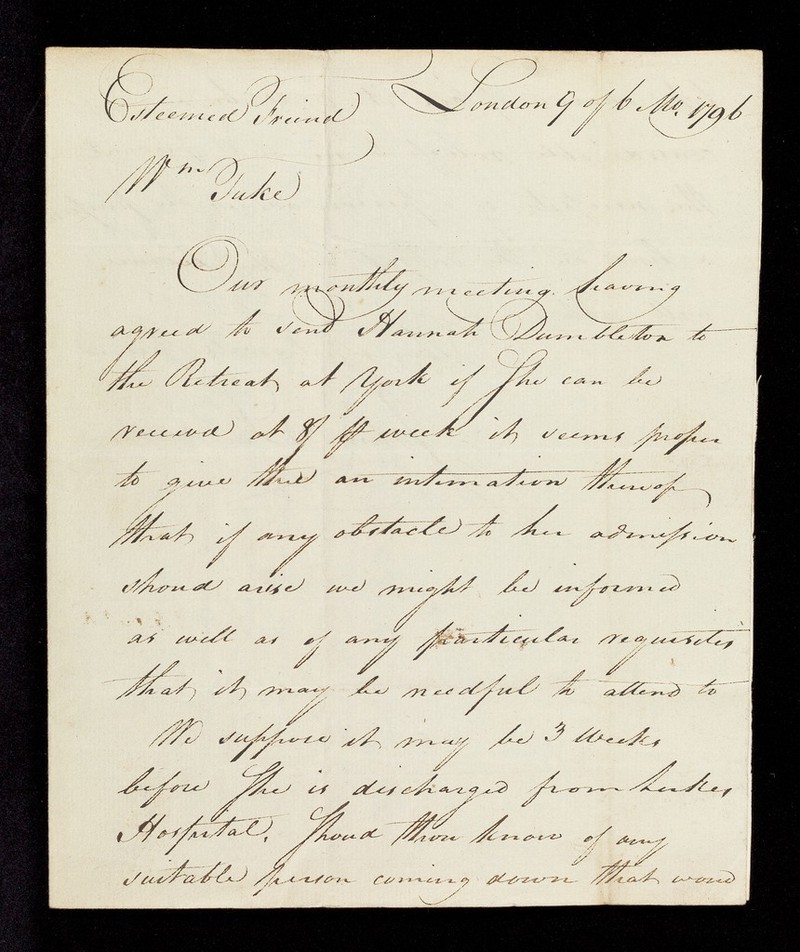 London 9 of 6 Mo. 1796
Esteemed Friend
Wm Tuke
Our monthly meeting having
agreed to send Hannah Dumbleton to
the Retreat at York if She can be
received at 8/ ⅌ week it seems proper
to give thee an intimation thereof
that if any obstacle to her admission
shoud arise we might be informed
as well as of any particular requisites
that it may be needful to attend to
We suppose it may be 3 weeks
before She is discharged from Lukes
Hospital. Shoud thou know of any
suitable person coming down that woud